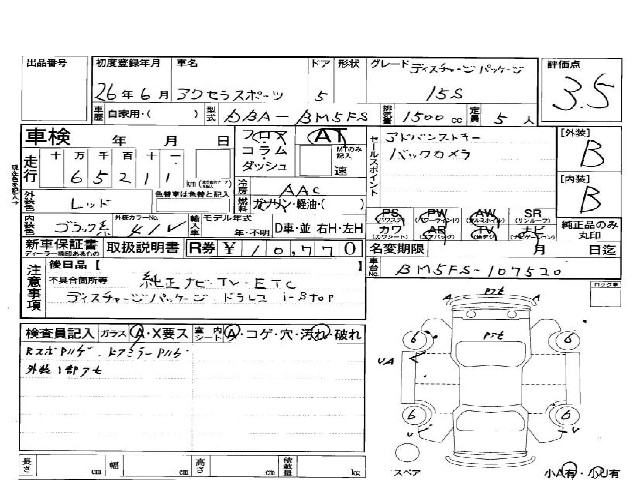 出品番号 初度登録年月 車名 ドア 形状 グレード ディスチャージパッケージ 評価点
26年6月 アクセラスポーツ 5 15S 3.5
車歴 自家用・( ) 型式 DBA-BM5FS 排気量 1500cc 定員 5人
車検 年 月 日 フロア AT セールスポイント アドバンストキー [外装]
走行 十万千百十一 コラム・ バックカメラ B
65211 ダッシュ 速 [内装]
外装色 レッド 色替車は色替と記入 冷房 AAC B
燃料 ガソリン・軽油・( ) PS PW AW SR
内装色 ブラック系 外装カラーNo. 41V 輸入車 モデル年式 年・不明 D車・並 右H・左H カワ AB TV ナビ 純正品のみ丸印
新車保証書 取扱説明書 R券 ¥10,770 名変期限 月 日迄
ディーラー捺印あるもの
注意事項 後日品 [ 車台No. BM5FS-107520
不具合箇所等 純正ナビ・TV・ETC
ディスチャージパッケージ ドラレコ i-stop
検査員記入 ガラス A・X要ス 室内シート A・コゲ・穴・汚れ・破れ
外装1部アセ
長さ cm 幅 cm 高さ cm 積載量 kg
スペア
小A有・小U有